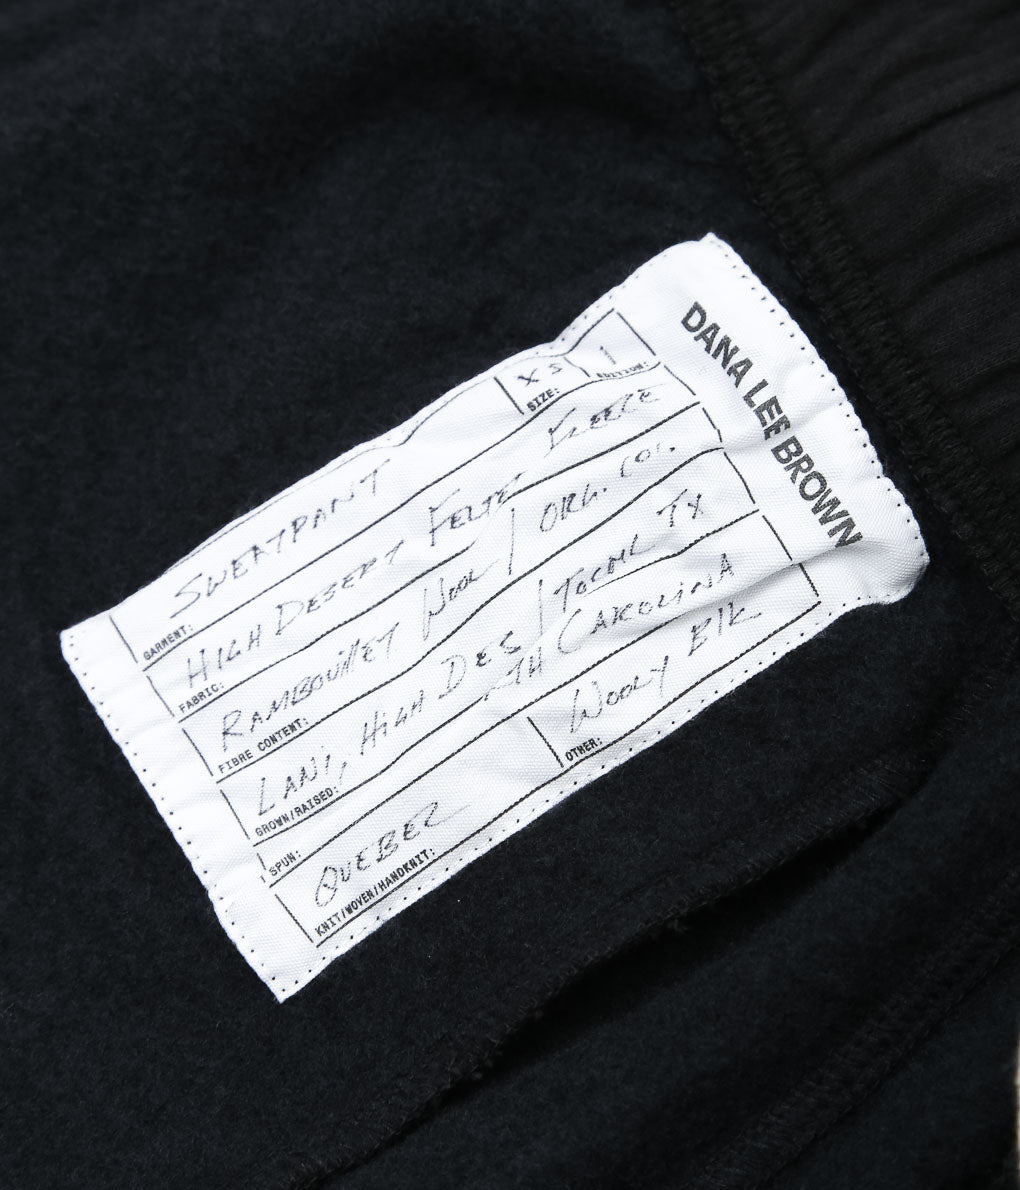 DANA LEE BROWN
XS 1
SIZE: EDITION:
SWEATPANT
GARMENT:
HIGH DESERT FELTED FLEECE
FABRIC:
RAMBOUILLET WOOL / ORG. COT.
FIBRE CONTENT:
LANI, HIGH DES / TX
GROWN/RAISED:
TH CAROLINA
SPUN:
QUEBEC WOOLY ELK
KNIT/WOVEN/HANDKNIT: OTHER: